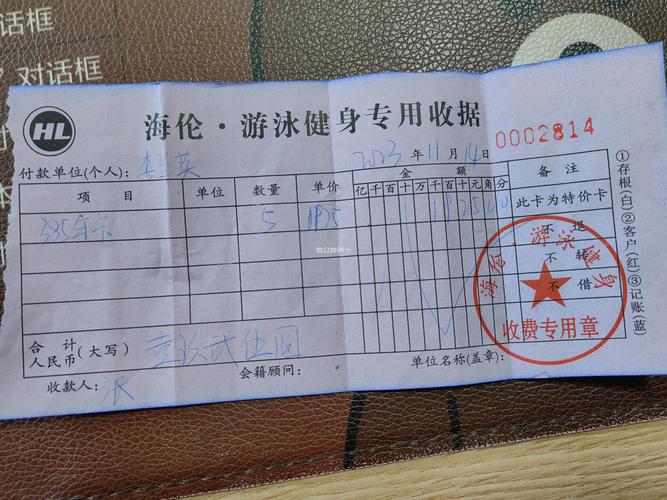 话框
对话框
HL
海伦·游泳健身专用收据
0002814
付款单位(个人): 英
2023年11月14日
项目 单位 数量 单价 金额 备注
亿千百十万千百十元角分
385年卡 5 1925 192500
此卡为特价卡
不退
不转
不借
合计
人民币(大写) 壹玖贰伍圆
收款人: 张
会籍顾问:
单位名称(盖章):
海伦·游泳健身
收费专用章
①存根(白)②客户(红)③记账(蓝)